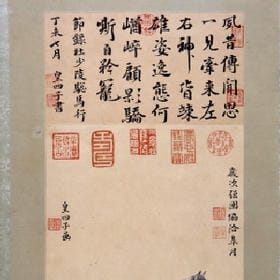 夙昔傳聞思
一見牽來左
右神皆竦
雄姿逸態何
崷崒顧影驕
嘶自矜寵
節録杜少陵驄馬行
丁未七月 皇四子書
歲次彊圉協洽皋月
皇四子畫